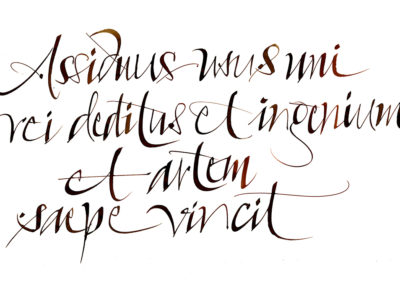 Assiduus usus uni
rei deditus et ingenium
et artem
saepe vincit